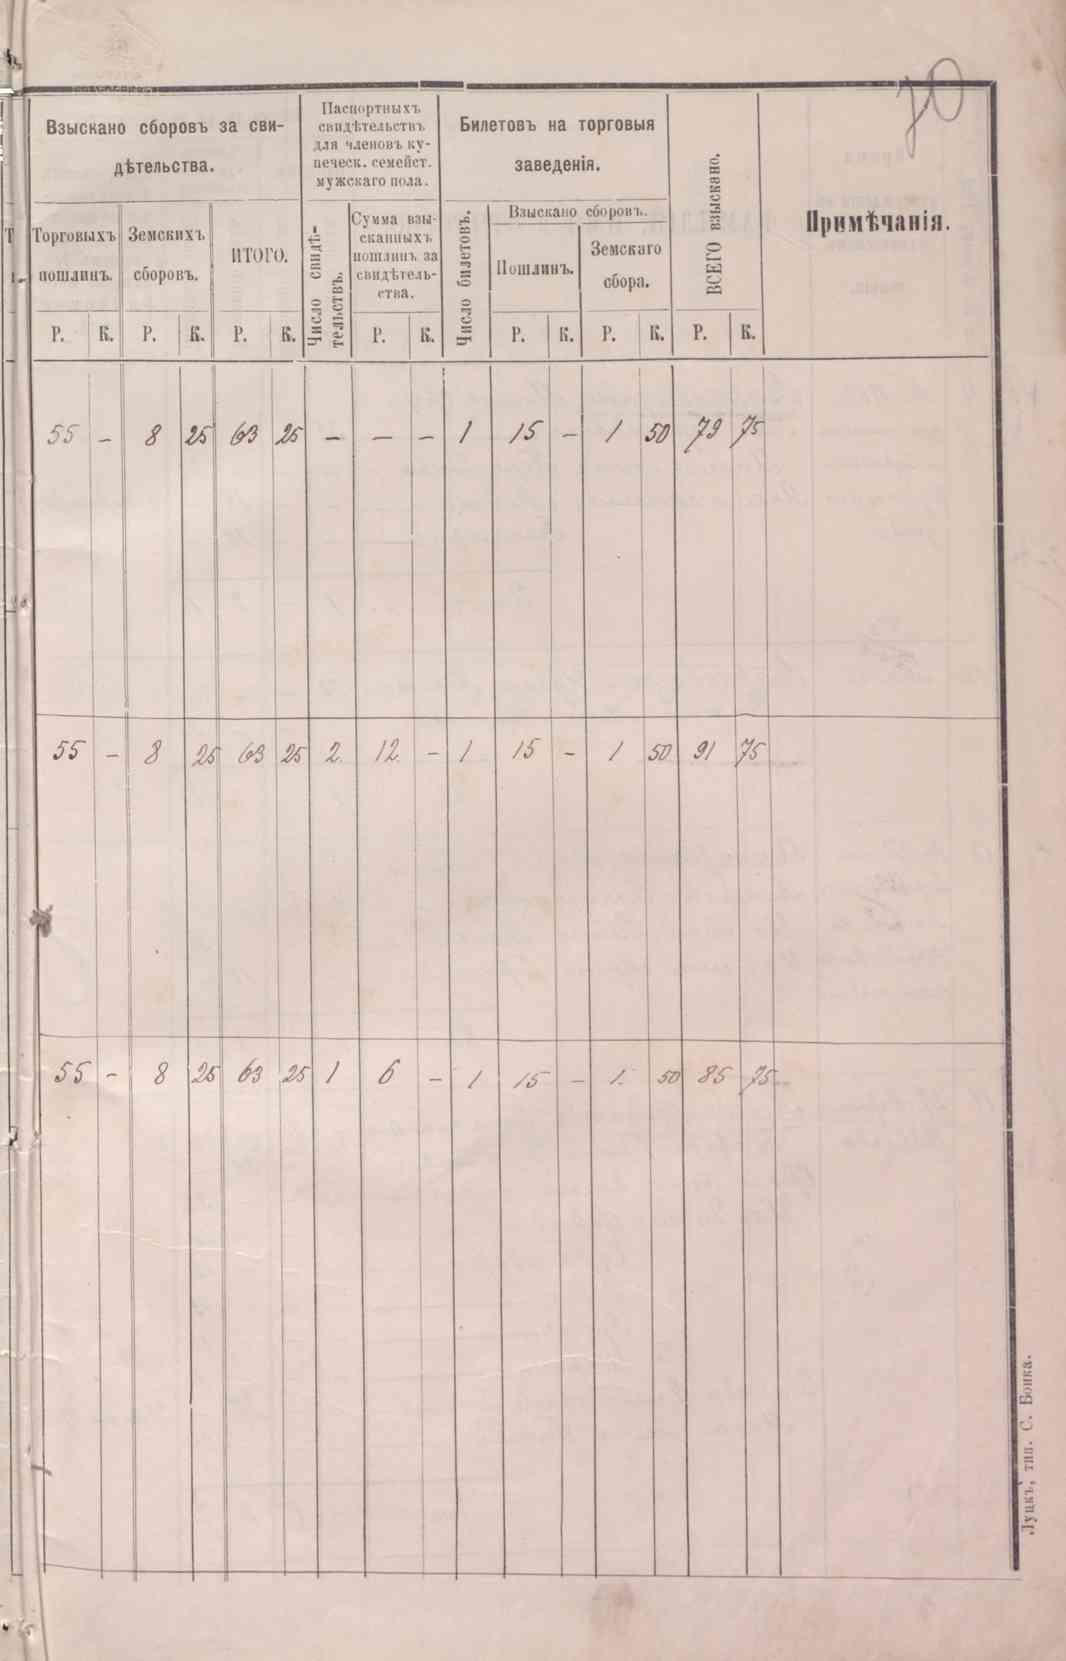 70
Взыскано сборовъ за сви-
дѣтельства.
Паспортныхъ
свидѣтельствъ
для членовъ ку-
печеск. семейст.
мужскаго пола.
Билетовъ на торговыя
заведенія.
ВСЕГО взыскано.
Примѣчанія.
Торговыхъ
пошлинъ.
Земскихъ
сборовъ.
ИТОГО.
Число свидѣ-
тельствъ.
Сумма взы-
сканныхъ
пошлинъ за
свидѣтель-
ства.
Число билетовъ.
Взыскано сборовъ.
Пошлинъ.
Земскаго
сбора.
Р. К. Р. К. Р. К. Р. К. Р. К. Р. К. Р. К.
55 – 8 25 63 25 – – – 1 15 – 1 50 79 75
55 – 8 25 63 25 2 12 – 1 15 – 1 50 91 75
55 – 8 25 63 25 1 6 – 1 15 – 1 50 85 75
Луцкъ, тип. С. Бонка.